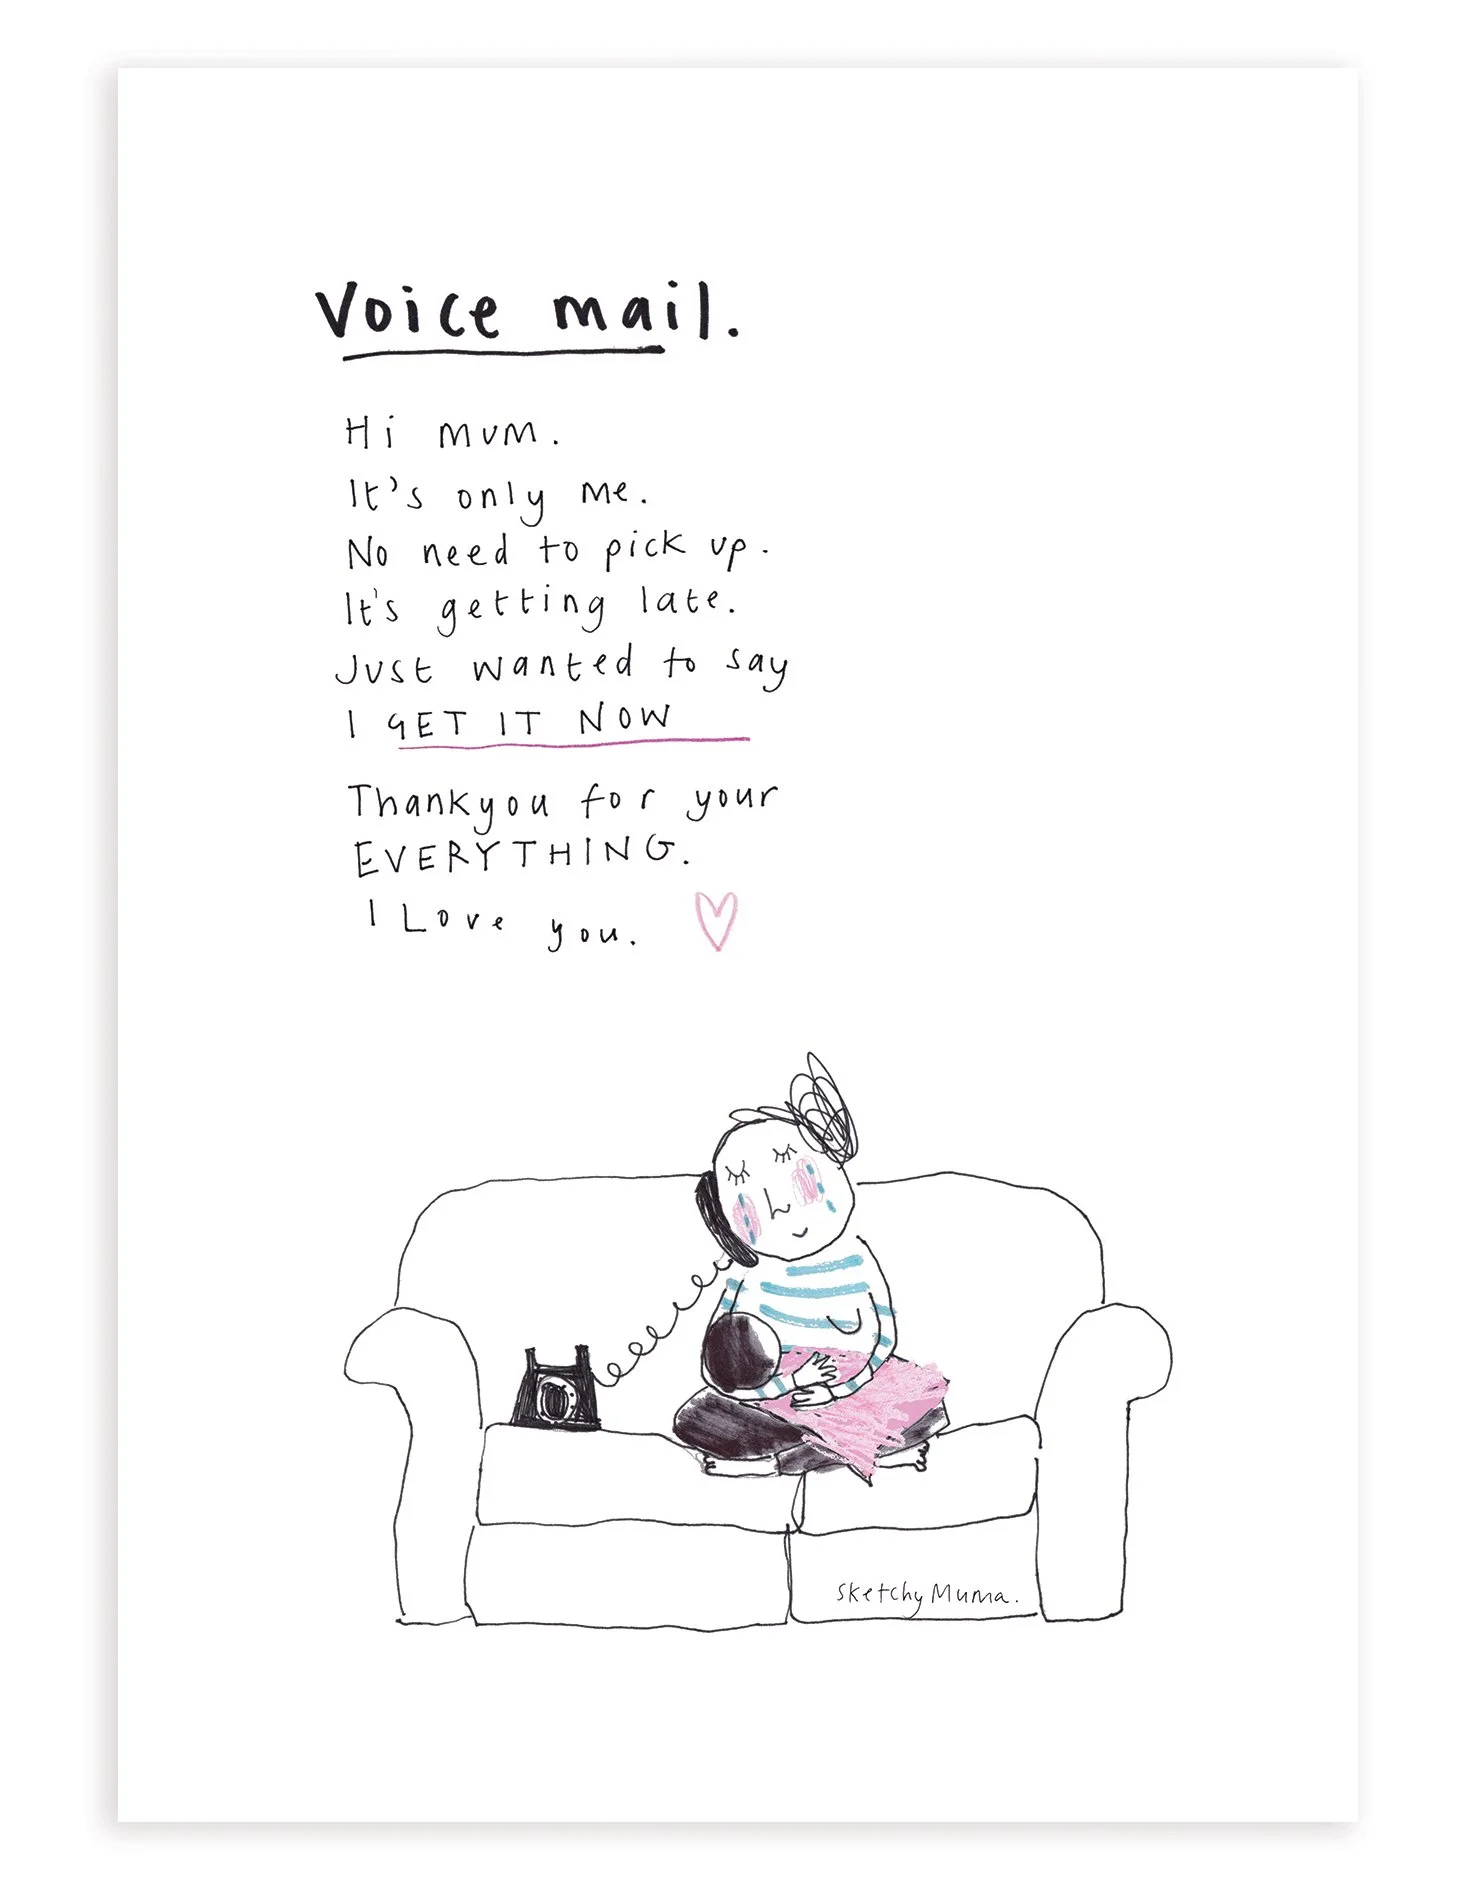 Voice mail.
Hi mum.
It's only me.
No need to pick up.
It's getting late.
Just wanted to say
I GET IT NOW
Thankyou for your
EVERYTHING.
I Love you.
sketchy Muma.